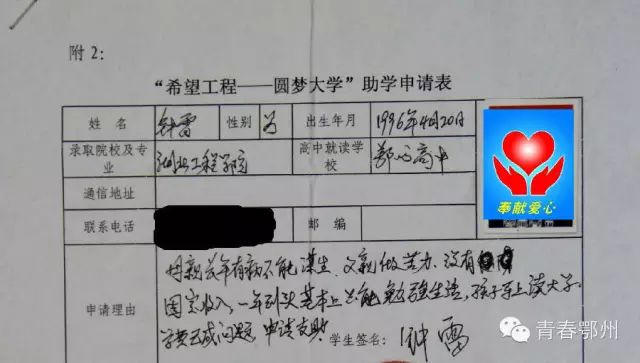 附2：
“希望工程——圆梦大学”助学申请表
姓名 钟雷 性别 男 出生年月 1996年4月20日
录取院校及专业 湖北工程学院 高中就读学校 鄂州高中
通信地址
联系电话 邮编
奉献爱心
申请理由
母亲长年有病不能谋生，父亲做苦力，没有
固定收入，一年到头基本上只能勉强生活，孩子考上读大学，
学费云成问题，申请支助
学生签名：钟雷
青春鄂州